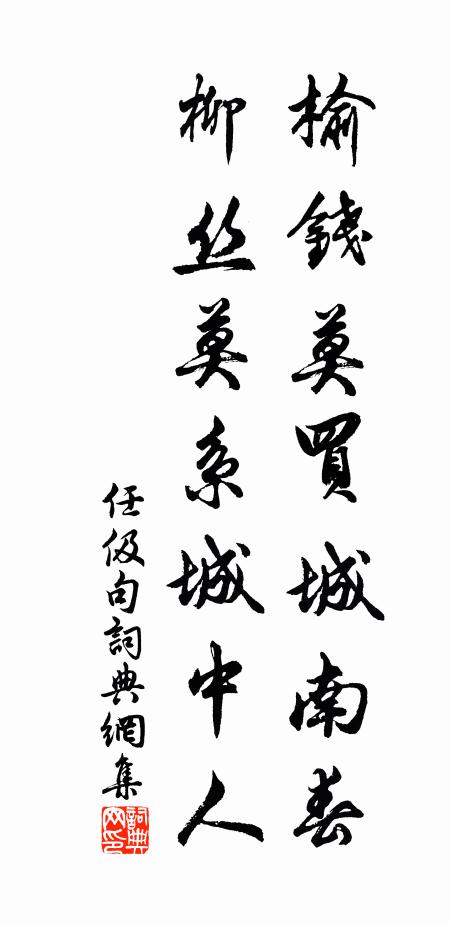 榆錢莫買城南春
柳丝莫系城中人
任伋句詞典網集
詞典网印